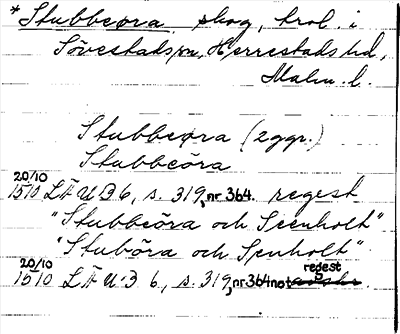 *Stubbeøra, skog, trol. i
Sövestads sn, Herrestads hd,
Malm. l.
Stubbeøra (2 ggr.)
Stubbeöra
20/10
1510 LÄU 3 6, s. 319, nr 364. regest
"Stubbeöra och Seenholt"
"Stuböra och Senholt".
20/10 regest
1510 LÄU 3 6, s. 319, nr 364 not